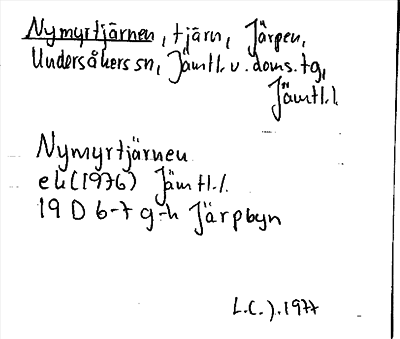 Nymyrtjärnen, tjärn, Järpen,
Undersåkers sn, Jämtl. v. doms. tg,
Jämtl. l.
Nymyrtjärnen
ek (1976) Jämtl. l.
19 D 6-7 g-h Järpbyn
L.C.J. 1977